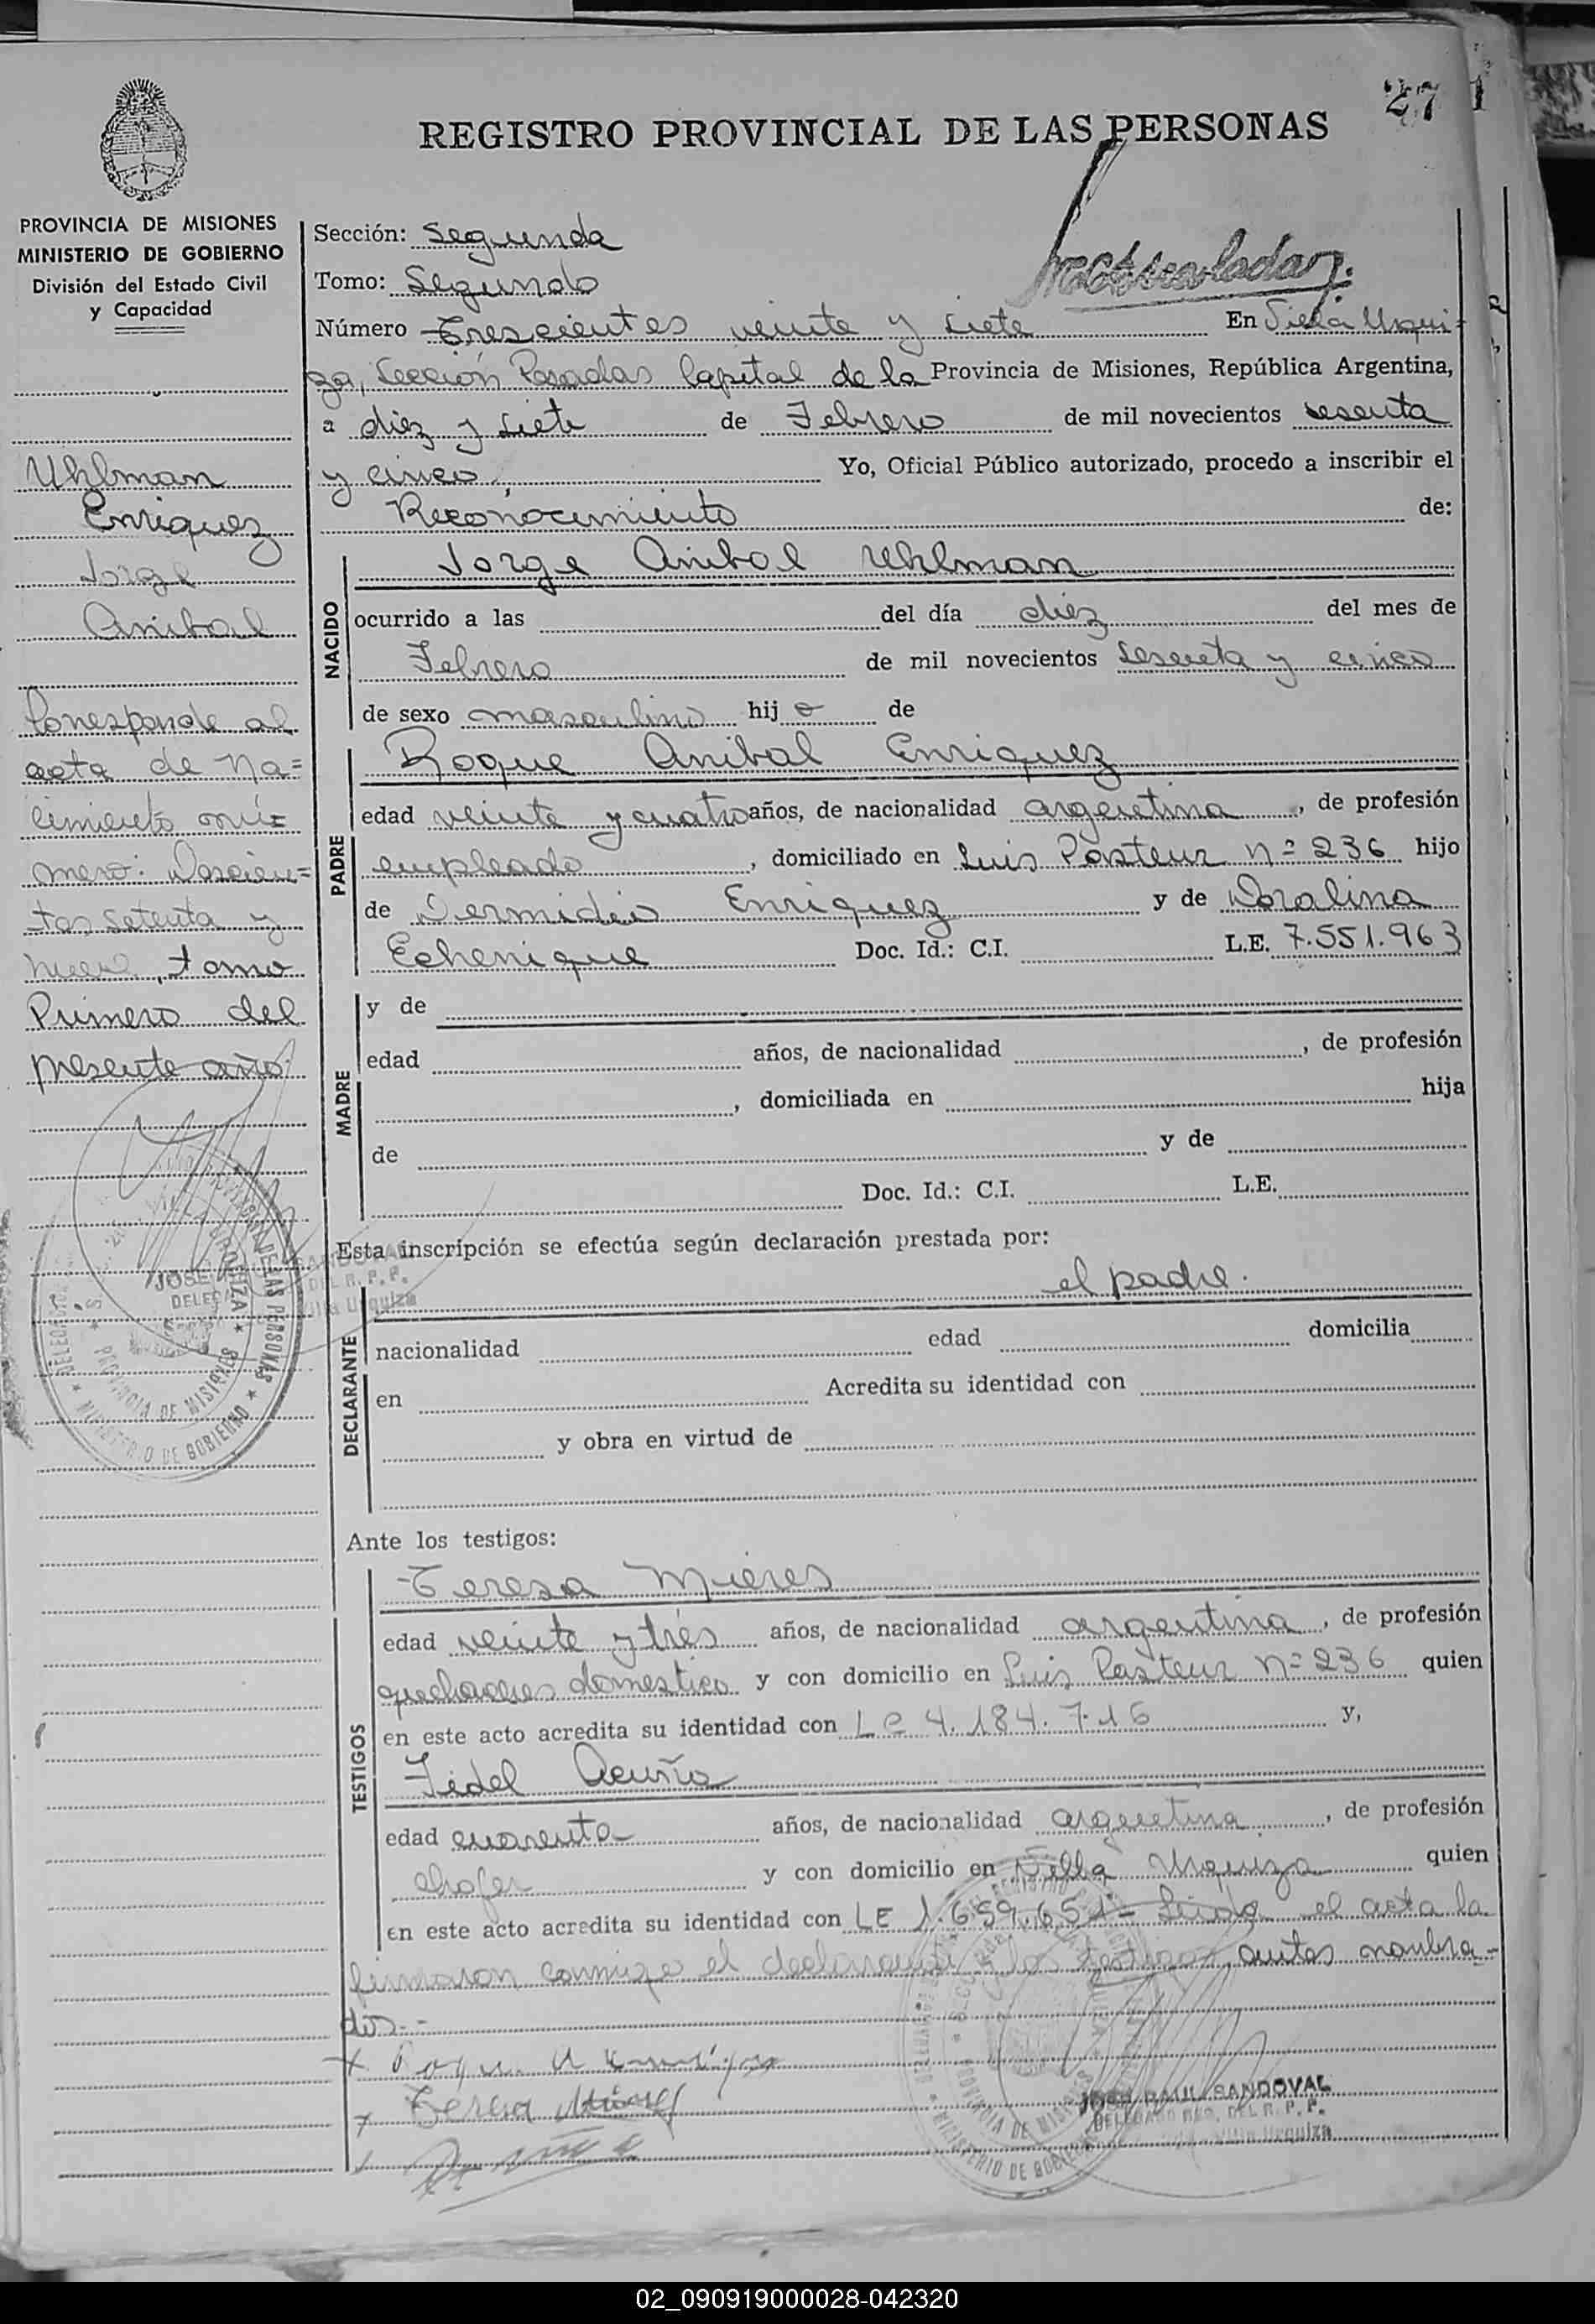 27
REGISTRO PROVINCIAL DE LAS PERSONAS
PROVINCIA DE MISIONES
MINISTERIO DE GOBIERNO
División del Estado Civil
y Capacidad
Uhlman
Enriquez
Jorge
Anibal
Corresponde al
acta de na=
cimiento nú=
mero: Doscien=
tos setenta y
nueve, tomo
Primero del
presente año.
Sección: Segunda
Tomo: Segundo
Número Trescientos veinte y siete En Villa Urqui-
za, Sección Posadas Capital de la Provincia de Misiones, República Argentina,
a diez y siete de Febrero de mil novecientos sesenta
y cinco, Yo, Oficial Público autorizado, procedo a inscribir el
Reconocimiento de:
NACIDO
Jorge Anibal Uhlman
ocurrido a las del día diez del mes de
Febrero de mil novecientos sesenta y cinco
de sexo masculino hij o de
PADRE
Roque Anibal Enriquez
edad veinte y cuatro años, de nacionalidad argentina, de profesión
empleado, domiciliado en Luis Pasteur nº 236 hijo
de Dermidio Enriquez y de Doralina
Echenique Doc. Id.: C.I. L.E. 7.551.963
MADRE
y de
edad años, de nacionalidad , de profesión
, domiciliada en hija
de y de
Doc. Id.: C.I. L.E.
Esta inscripción se efectúa según declaración prestada por:
el padre.
DECLARANTE
nacionalidad edad domicilia
en Acredita su identidad con
y obra en virtud de
Ante los testigos:
TESTIGOS
Teresa Mieres
edad veinte y tres años, de nacionalidad argentina, de profesión
quehaceres domestico y con domicilio en Luis Pasteur nº 236 quien
en este acto acredita su identidad con LC 4.184.716 y,
Fidel Acuña
edad cuarenta años, de nacionalidad argentina, de profesión
chofer y con domicilio en Villa Urquiza quien
en este acto acredita su identidad con LE 1.659.651- Leida el acta la
firmaron conmigo el declarante y los testigos antes nombra-
dos.-
Teresa Mieres
JOSE RAUL SANDOVAL
DELEGADO DEL R. P. P.
Villa Urquiza
PROVINCIA DE MISIONES
MINISTERIO DE GOBIERNO
02_090919000028-042320